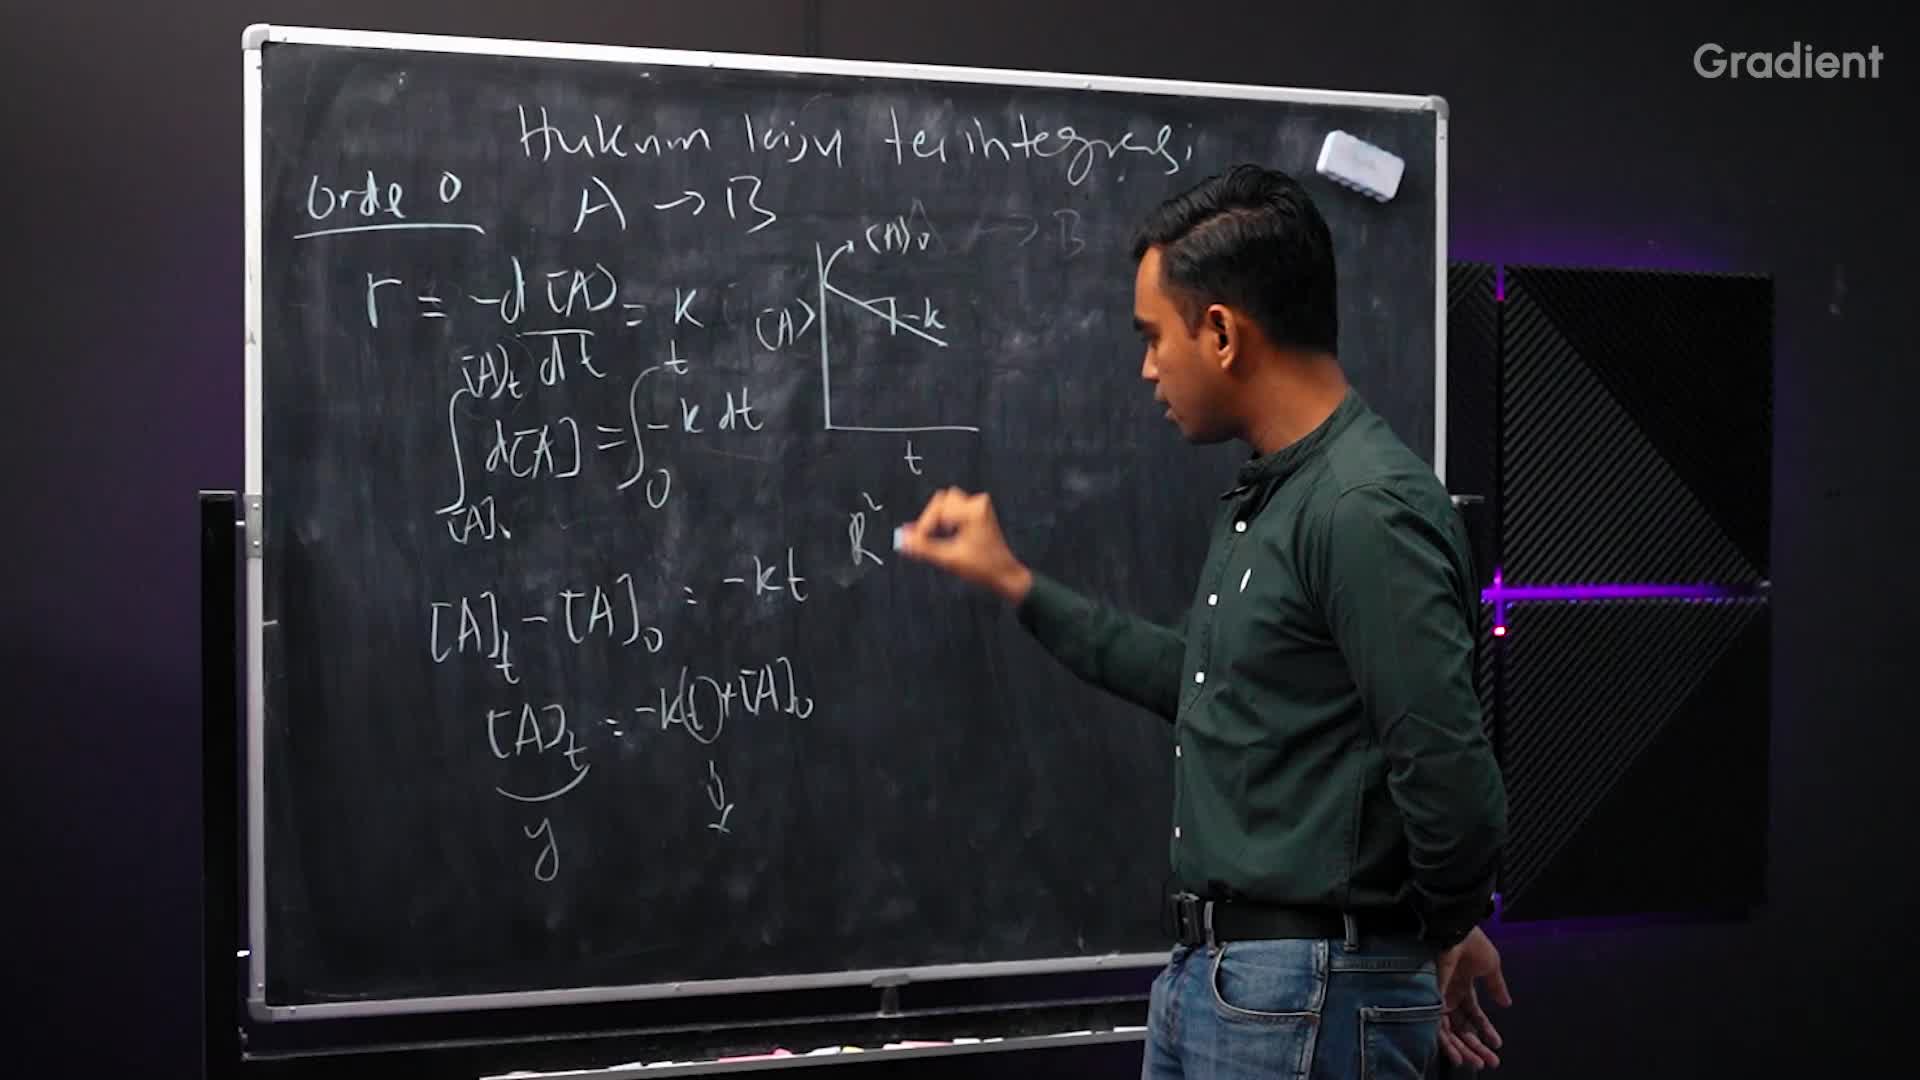 Gradient
Hukum laju terintegrasi
Orde 0 A → B
r = -d[A]/dt = k
∫ d[A] = ∫ -k dt
[A]t
[A]0
t
0
[A]t - [A]0 = -kt
[A]t = -k(t) + [A]0
y
x
[A]0
[A]
-k
t
R²
→ B